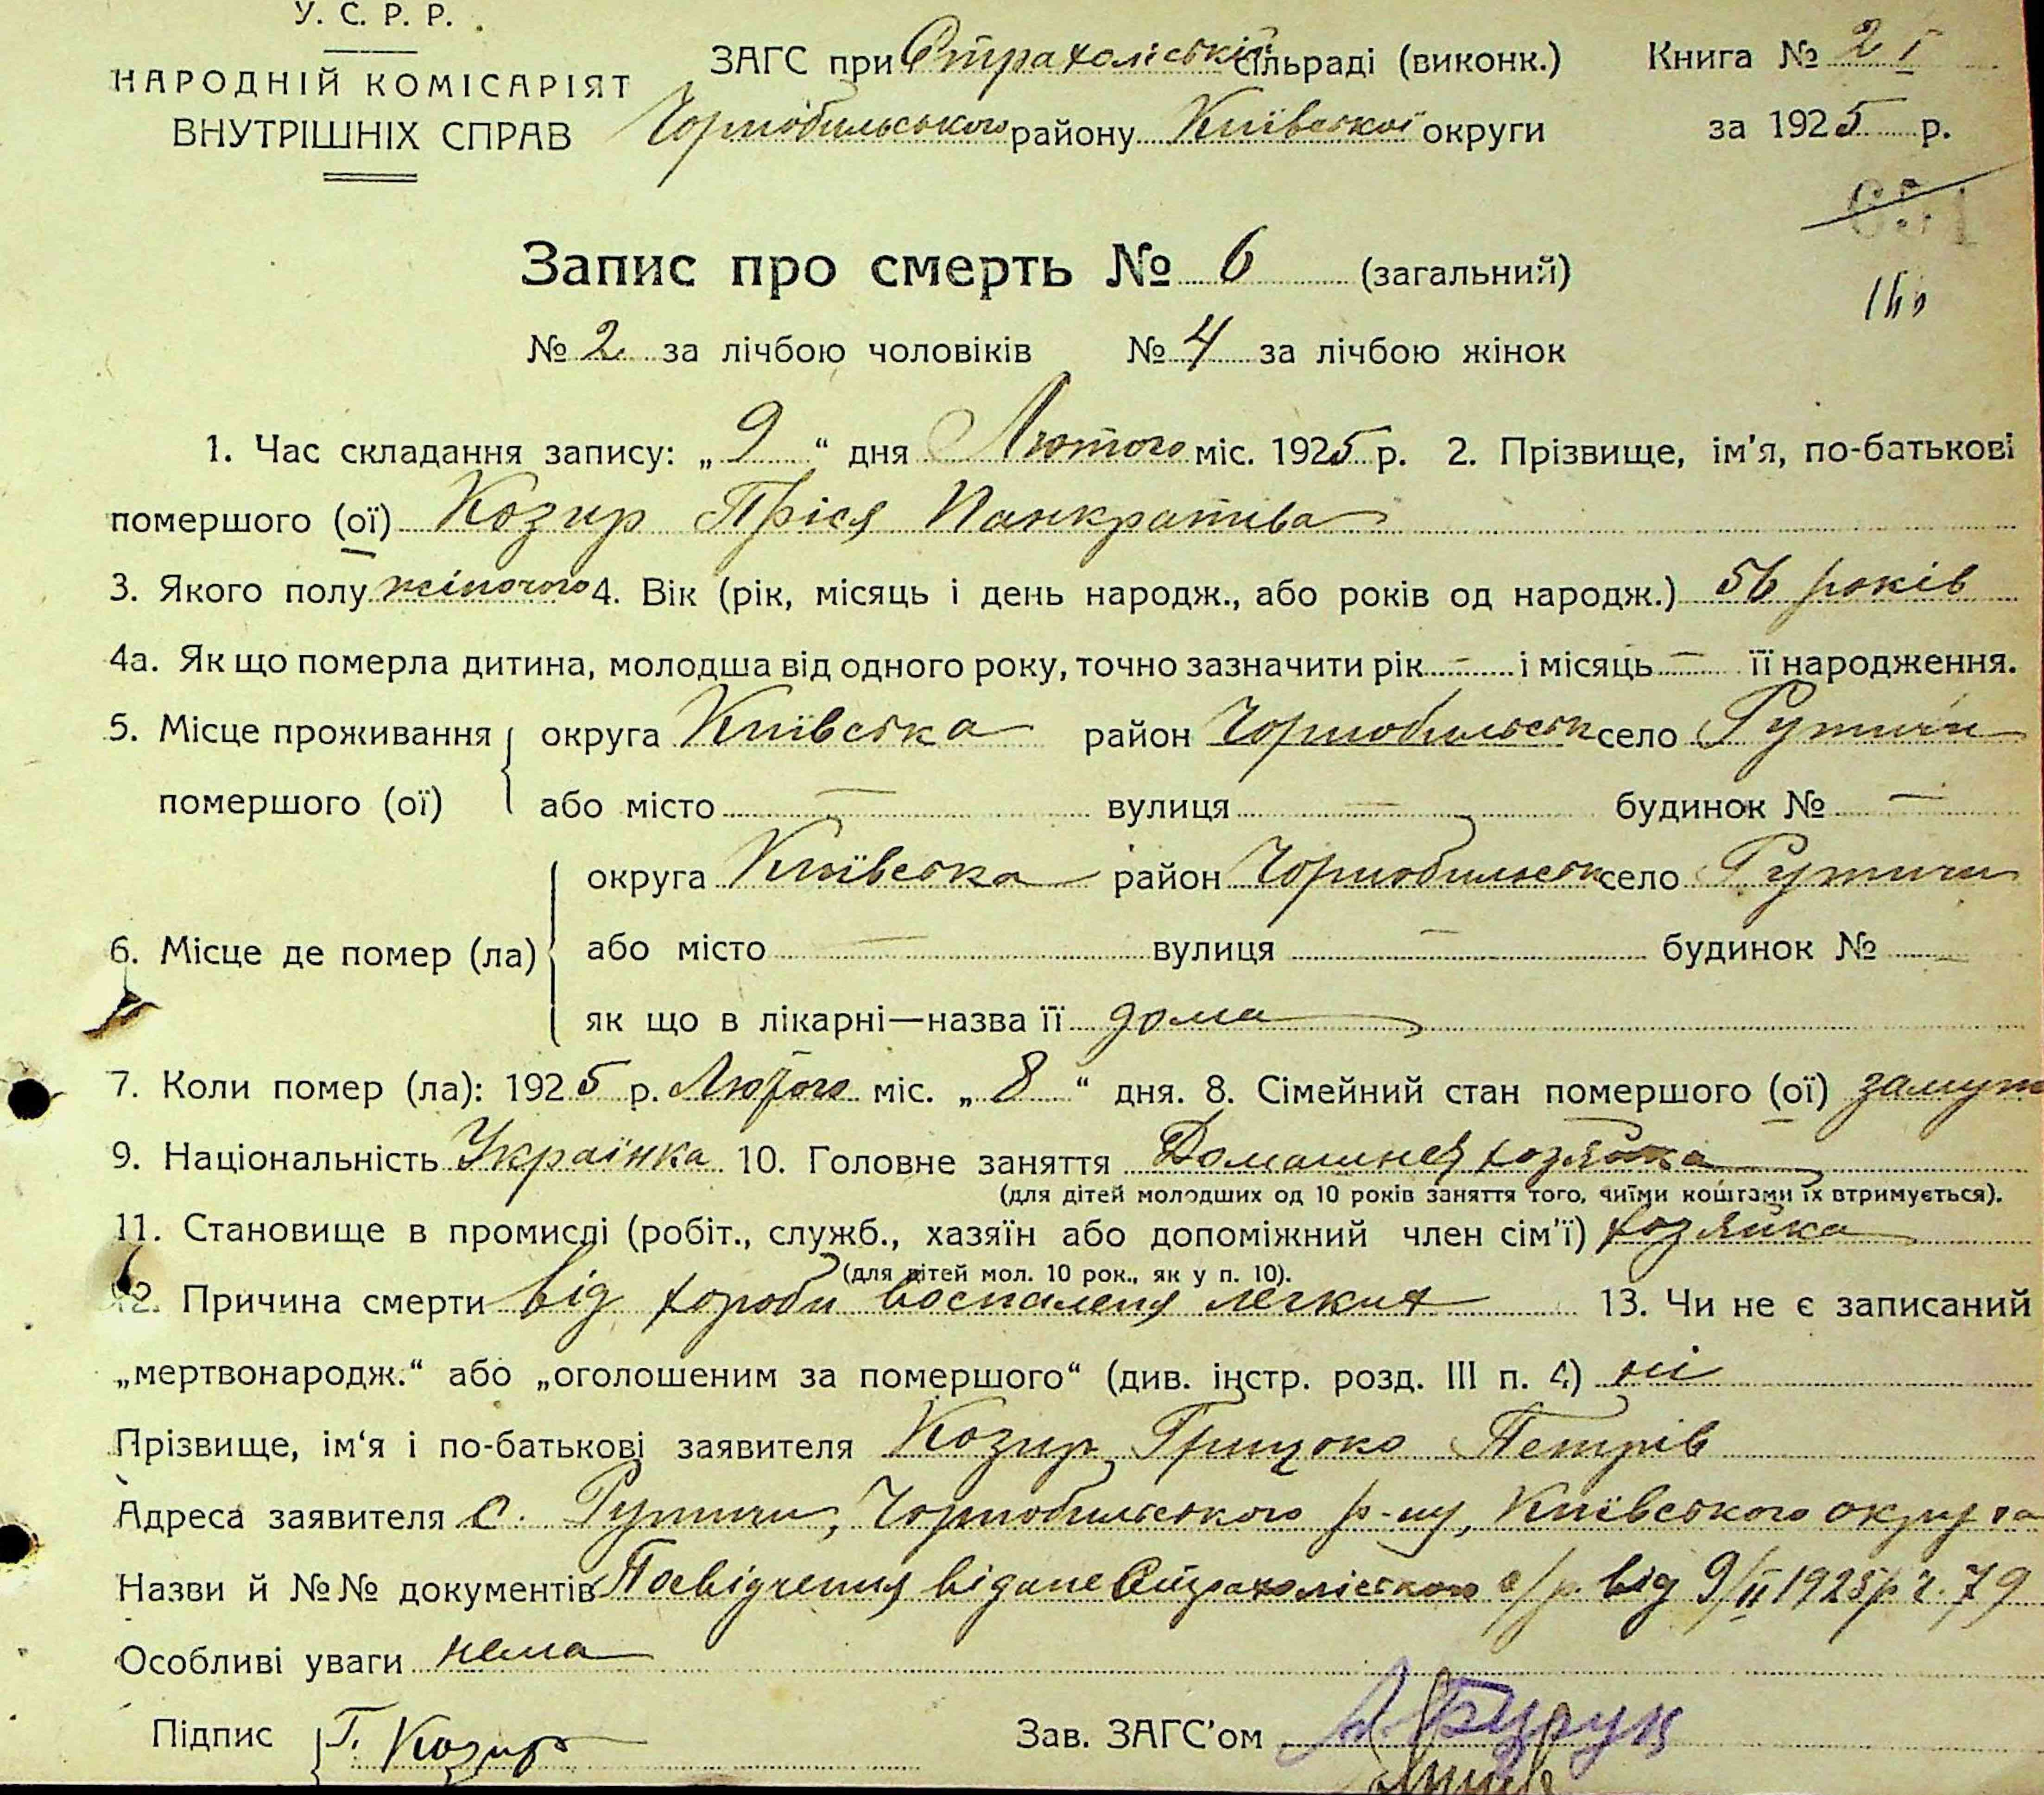 У. С. Р. Р.
НАРОДНІЙ КОМІСАРІЯТ
ВНУТРІШНІХ СПРАВ
ЗАГС при Страхоліській сільраді (виконк.)
Чорнобильського району Київської округи
Книга № 2 I
за 1925 р.
Запис про смерть № 6 (загальний)
№ 2 за лічбою чоловіків № 4 за лічбою жінок
1. Час складання запису: „9“ дня Лютого міс. 1925 р. 2. Прізвище, ім'я, по-батькові
помершого (ої) Козир Пріся Панкратіва
3. Якого полу жіночого 4. Вік (рік, місяць і день народж., або років од народж.) 56 років
4а. Як що померла дитина, молодша від одного року, точно зазначити рік — і місяць — її народження.
5. Місце проживання округа Київська район Чорнобильськ село Рутичи
помершого (ої) або місто — вулиця — будинок № —
округа Київська район Чорнобильськ село Рутичи
6. Місце де помер (ла) або місто — вулиця — будинок № —
як що в лікарні—назва її дома
7. Коли помер (ла): 1925 р. Лютого міс. „8“ дня. 8. Сімейний стан помершого (ої) замуж
9. Національність Українка 10. Головне заняття Домашнея хозяйка
(для дітей молодших од 10 років заняття того, чиїми коштами їх втримується).
11. Становище в промислі (робіт., служб., хазяїн або допоміжний член сім'ї) хозяйка
(для дітей мол. 10 рок., як у п. 10).
12. Причина смерти від хороби воспаленя легких 13. Чи не є записаний
„мертвонародж.“ або „оголошеним за помершого“ (див. інстр. розд. III п. 4) ні
Прізвище, ім'я і по-батькові заявителя Козир Грицько Петрів
Адреса заявителя с. Рутичи, Чорнобильського р-ну, Київського округа
Назви й №№ документів Посвідченя відане Страхоліською с/р. від 9/II 1925 р. ч. 79
Особливі уваги нема
Підпис Г. Козир
Зав. ЗАГС'ом